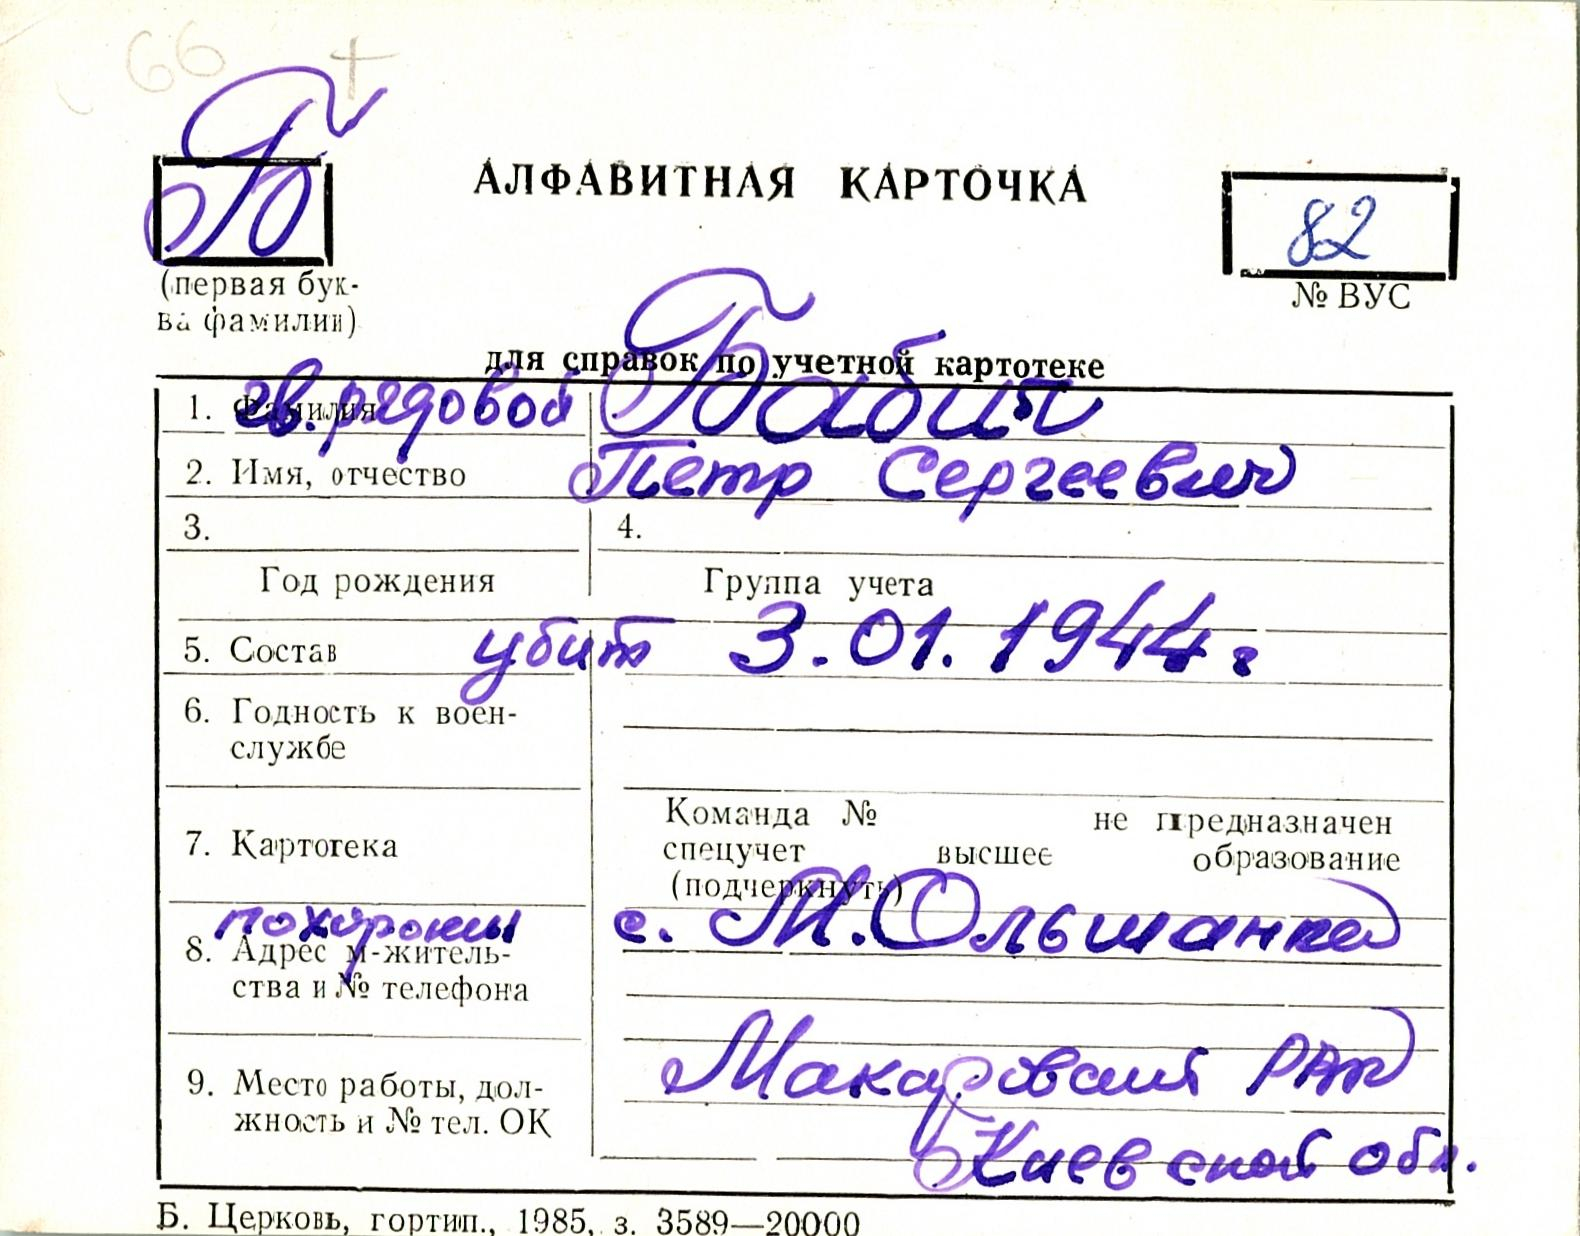 66 +
Б
АЛФАВИТНАЯ КАРТОЧКА
82
(первая бук-
ва фамилии)
№ ВУС
для справок по учетной картотеке
1. Фамилия гв. рядовой Бабич
2. Имя, отчество Петр Сергеевич
3. 4.
Год рождения Группа учета
5. Состав убит 3.01.1944 г
6. Годность к воен-
службе
Команда № не предназначен
7. Картотека спецучет высшее образование
(подчеркнуть)
похороны с. М. Ольшанка
8. Адрес м-житель-
ства и № телефона
Макаровский
9. Место работы, дол-
жность и № тел. ОК
Киевской обл.
Б. Церковь, гортип., 1985, з. 3589—20000